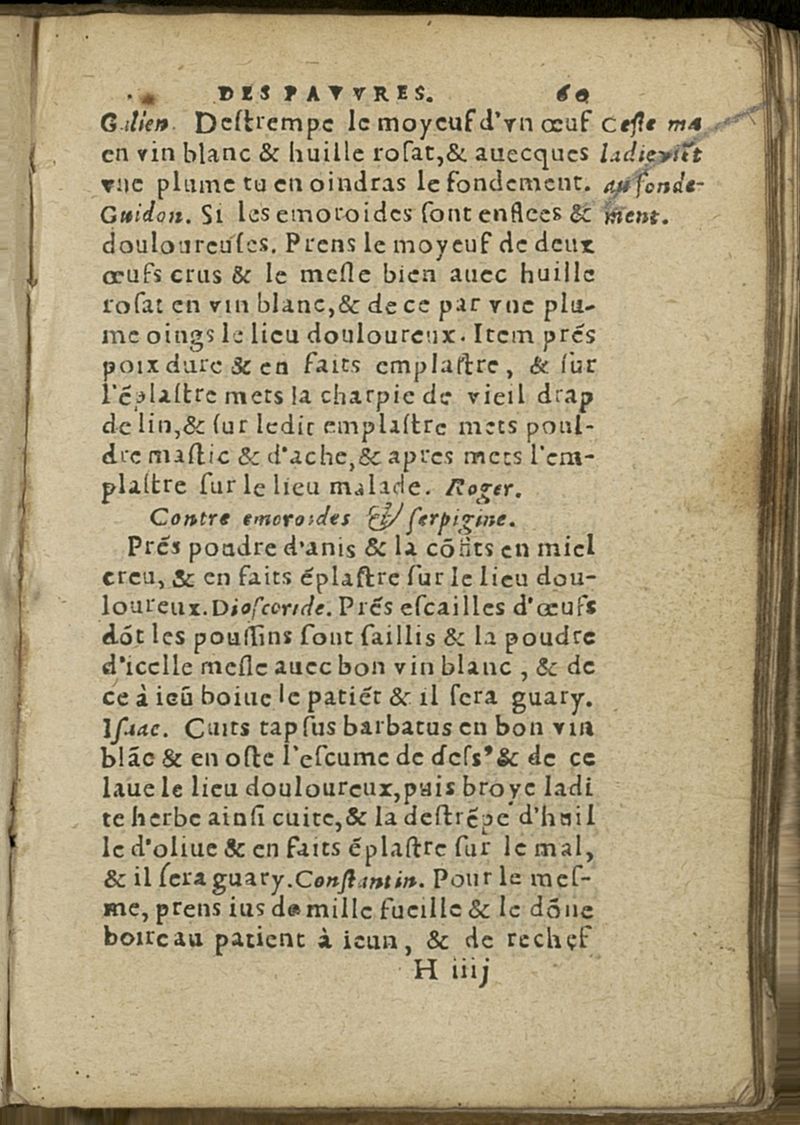 DES PAVVRES. 60
Galien. Deſtrempe le moyeuf d'vn œuf
en vin blanc & huille roſat, & auecques
vne plume tu en oindras le fondement.
Guidon. Si les emoroides ſont enflees &
douloureuſes. Prens le moyeuf de deux
œufs crus & le meſle bien auec huille
roſat en vin blanc, & de ce par vne plu-
me oings le lieu douloureux. Item prés
poix dure & en faits emplaſtre, & ſur
l'éplaſtre mets la charpie de vieil drap
de lin, & ſur ledit emplaſtre mets poul-
dre maſtic & d'ache, & apres mets l'em-
plaſtre ſur le lieu malade. Roger.
Contre emoroides & ſerpigine.
Prés poudre d'anis & la cõfits en miel
creu, & en faits éplaſtre ſur le lieu dou-
loureux. Dioſcoride. Prés eſcailles d'œufs
dót les pouſſins ſont ſaillis & la poudre
d'icelle meſle auec bon vin blanc, & de
ce à ieũ boiue le patiét & il ſera guary.
Iſaac. Cuits tapſus barbatus en bon vin
blãc & en oſte l'eſcume de deſs' & de ce
laue le lieu douloureux, puis broye ladi
te herbe ainſi cuite, & la deſtrépe d'huil
le d'oliue & en faits éplaſtre ſur le mal,
& il ſera guary. Conſtantin. Pour le meſ-
me, prens ius de mille fueille & le dõne
boire au patient à ieun, & de rechef
H iiij
Ceſte ma
ladie vièt
au fonde-
ment.